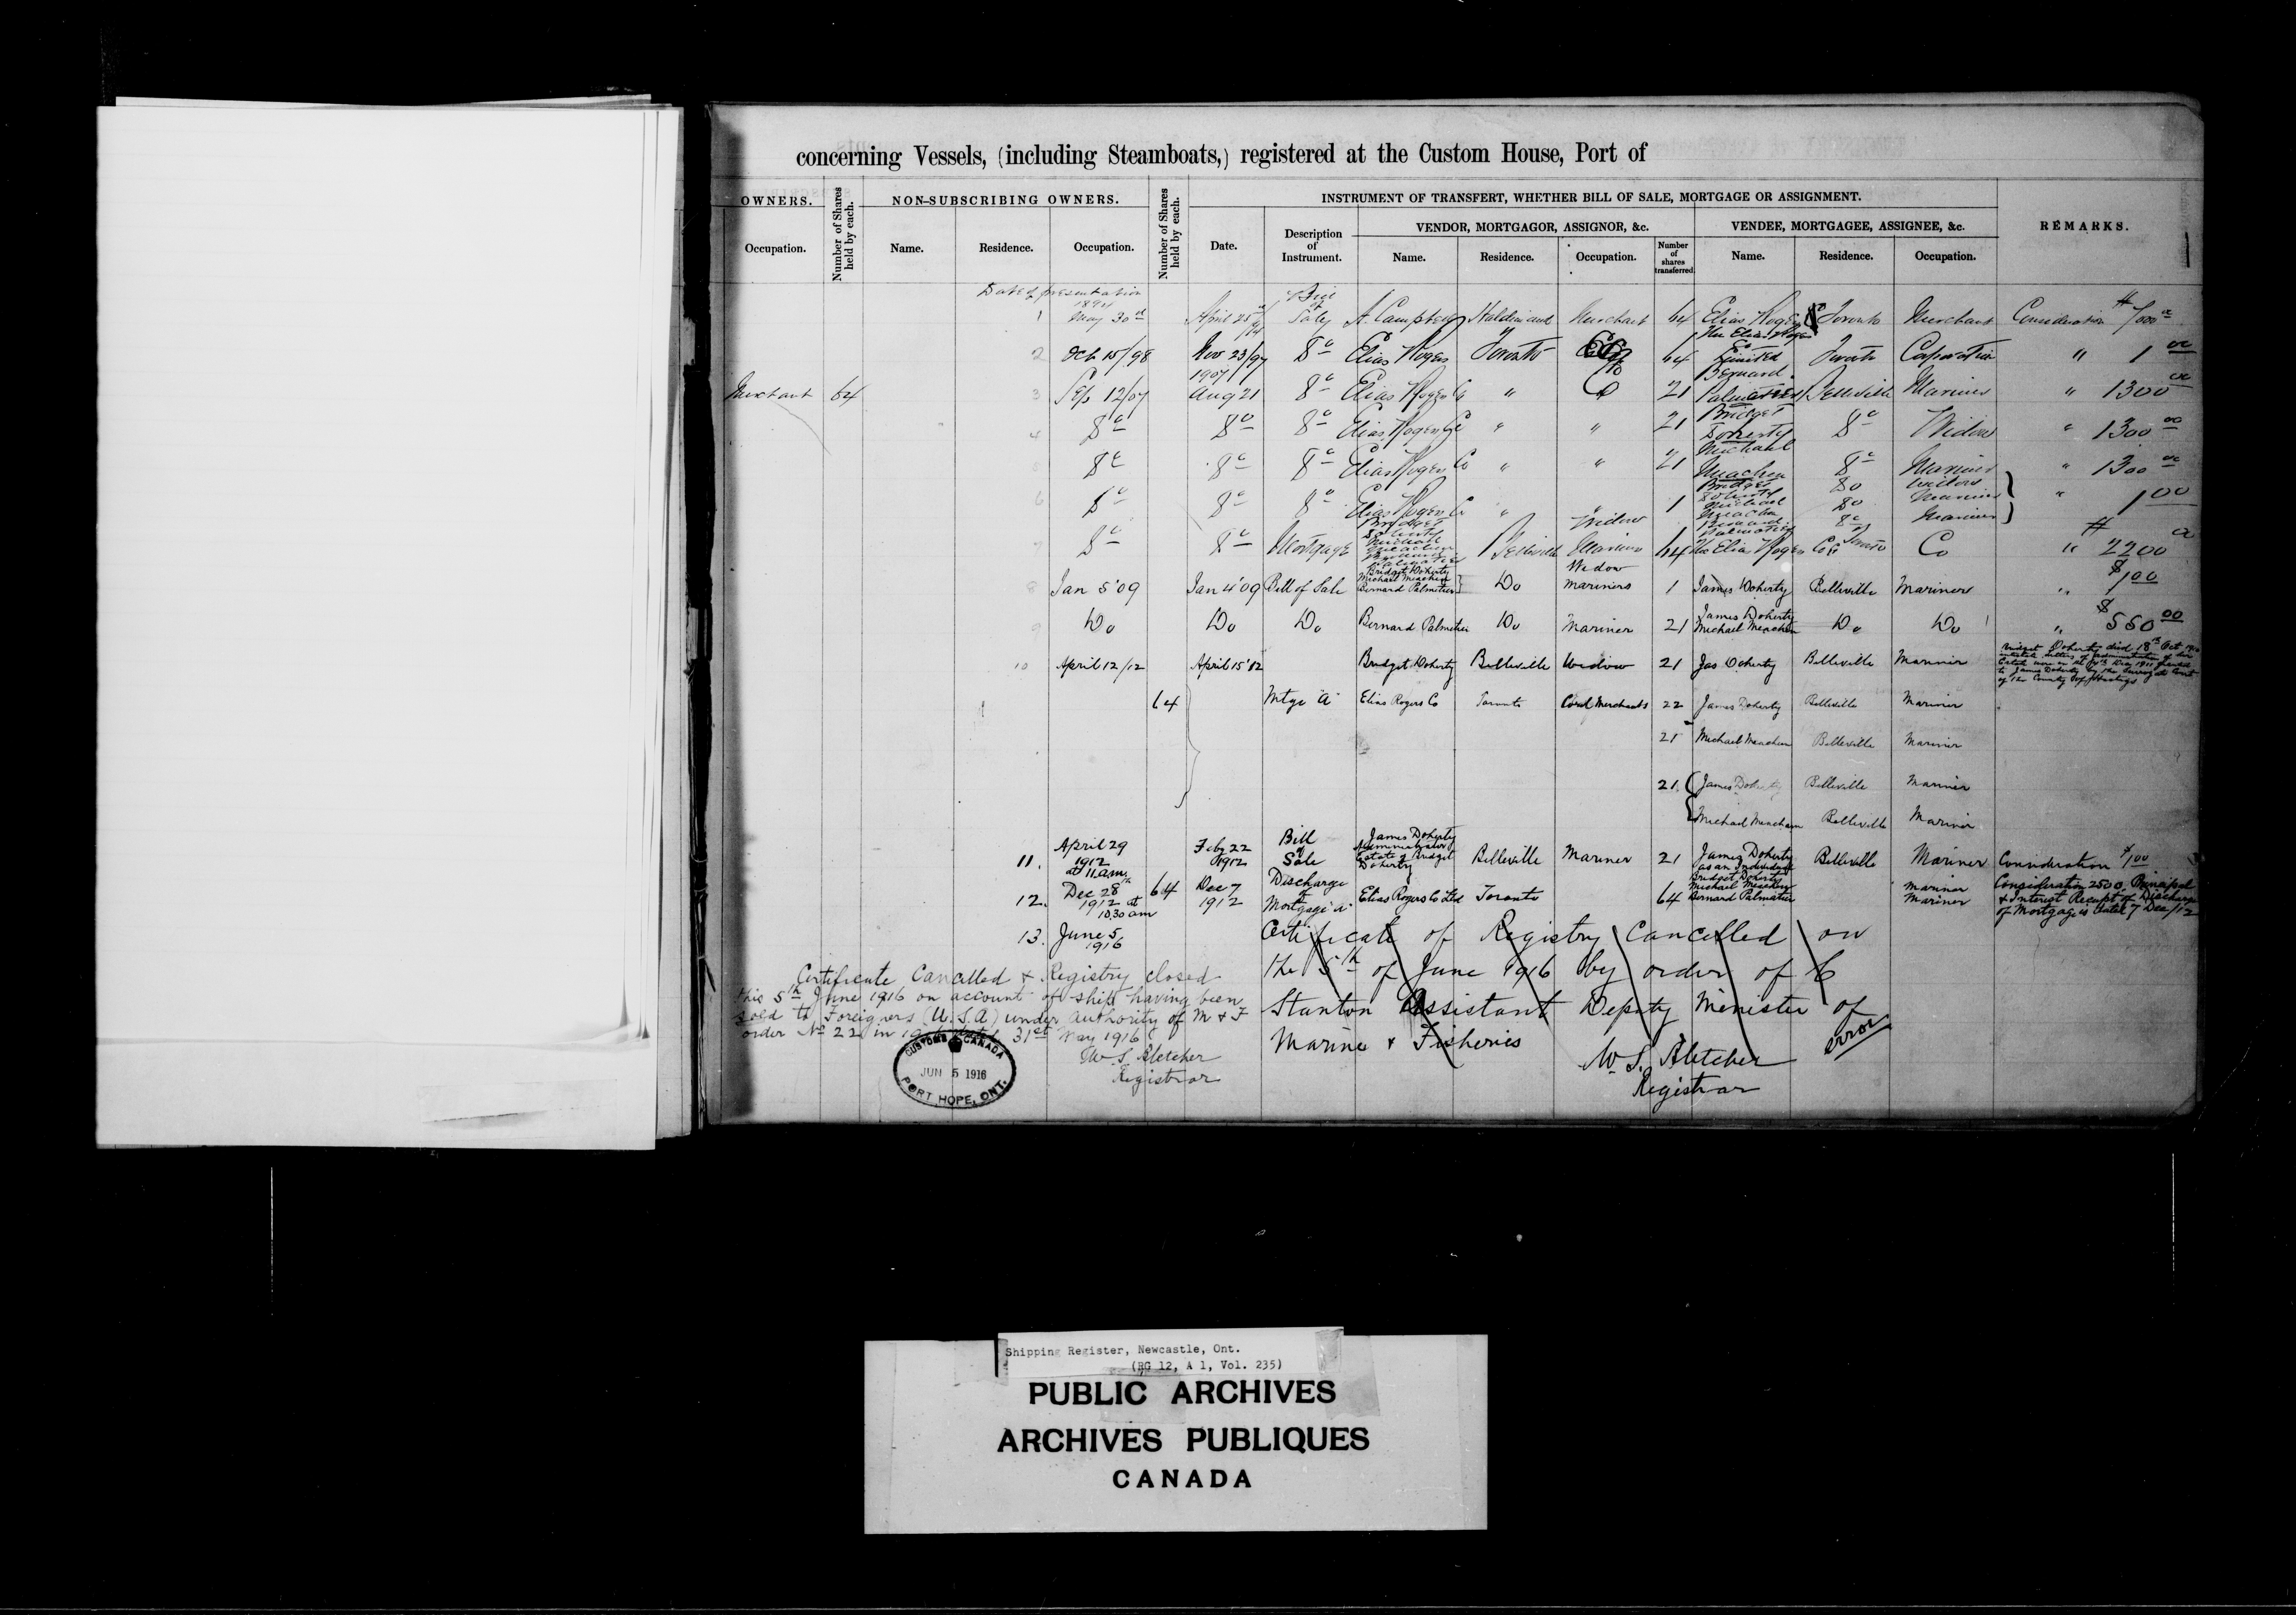 concerning Vessels, (including Steamboats,) registered at the Custom House, Port of
OWNERS.
Number of Shares held by each.
NON-SUBSCRIBING OWNERS.
Number of Shares held by each.
INSTRUMENT OF TRANSFERT, WHETHER BILL OF SALE, MORTGAGE OR ASSIGNMENT.
VENDOR, MORTGAGOR, ASSIGNOR, &c.
VENDEE, MORTGAGEE, ASSIGNEE, &c.
REMARKS.
Occupation. Name. Residence. Occupation. Date. Description of Instrument. Name. Residence. Occupation. Number of shares transferred. Name. Residence. Occupation.
Date of presentation
1 1894 May 30th April 25th /94 Bill of Sale A. Campbell Haldimand Merchant 64 Elias Rogers Toronto Merchant Consideration $
2 Oct 15/98 Nov 23/97 Do Elias Rogers Toronto 64 The Elias Rogers Co Limited Toronto Corporation " 1 00
Merchant 64 3 Sep 12/07 1907 Aug 21 Do Elias Rogers Co " Co 21 Bernard Palmatier Belleville Mariner " 1300 00
4 Do Do Do Elias Rogers Co " " 21 Bridget Doherty Do Widow " 1300 00
5 Do Do Do Elias Rogers Co " " 21 Michael Meachen Do Mariner " 1300 00
6 Do Do Do Elias Rogers Co " " 1 Bridget Doherty Michael Meachen Bernard Palmatier Do Do Do Widow Mariner Mariner " 1 00
7 Do Do Mortgage Bridget Doherty Michael Meachen Belleville Widow Mariner 64 The Elias Rogers Co Toronto Co " $2200
8 Jan 5 '09 Jan 4 '09 Bill of Sale Bridget Doherty Michael Meachem Bernard Palmatier Do Widow Mariners 1 James Doherty Belleville Mariner " $1 00
9 Do Do Do Bernard Palmatier Do Mariner 21 James Doherty Michael Meachem Do Do " $550 00
10 April 12/12 April 15 '12 Bridget Doherty Belleville Widow 21 Jas Doherty Belleville Mariner
Bridget Doherty died 18th Oct
intestate. Letters of administration of her
Estate were on the Dec 1911 granted
to James Doherty by the Surrogate Court
of the County of Hastings
64 Mtge "A" Elias Rogers Co Toronto Coal Merchants 22 James Doherty Belleville Mariner
21 Michael Meachem Belleville Mariner
21 James Doherty Belleville Mariner
Michael Meacham Belleville Mariner
11. April 29 1912 at 11 a.m. Feby 22 1912 Bill of Sale James Doherty Administrator Estate of Bridget Doherty Belleville Mariner 21 James Doherty as an Individual Belleville Mariner Consideration $1 00
12. Dec 28th 1912 at 10.30 am 64 Dec 7 1912 Discharge of Mortgage "A" Elias Rogers Co Ltd Toronto 64 Bridget Doherty Michael Meachem Bernard Palmatier Mariner Mariner
Consideration 2500. Principal
& Interest Receipt of Discharge
of Mortgage is dated 7 Dec/12
13. June 5, 1916 Certificate of Registry Cancelled on
the 5th of June 1916 by order of C
Stanton Assistant Deputy Minister of
Marine & Fisheries
error
W. S. Bletcher
Registrar
Certificate Cancelled & Registry closed
this 5th June 1916 on account of ship having been
sold to Foreigners (U.S.A) under authority of M & F
order No 22 in 1916 dated 31st May 1916
W S Bletcher
Registrar
CUSTOMS CANADA
JUN 5 1916
PORT HOPE, ONT.
Shipping Register, Newcastle, Ont.
(RG 12, A 1, Vol. 235)
PUBLIC ARCHIVES
ARCHIVES PUBLIQUES
CANADA